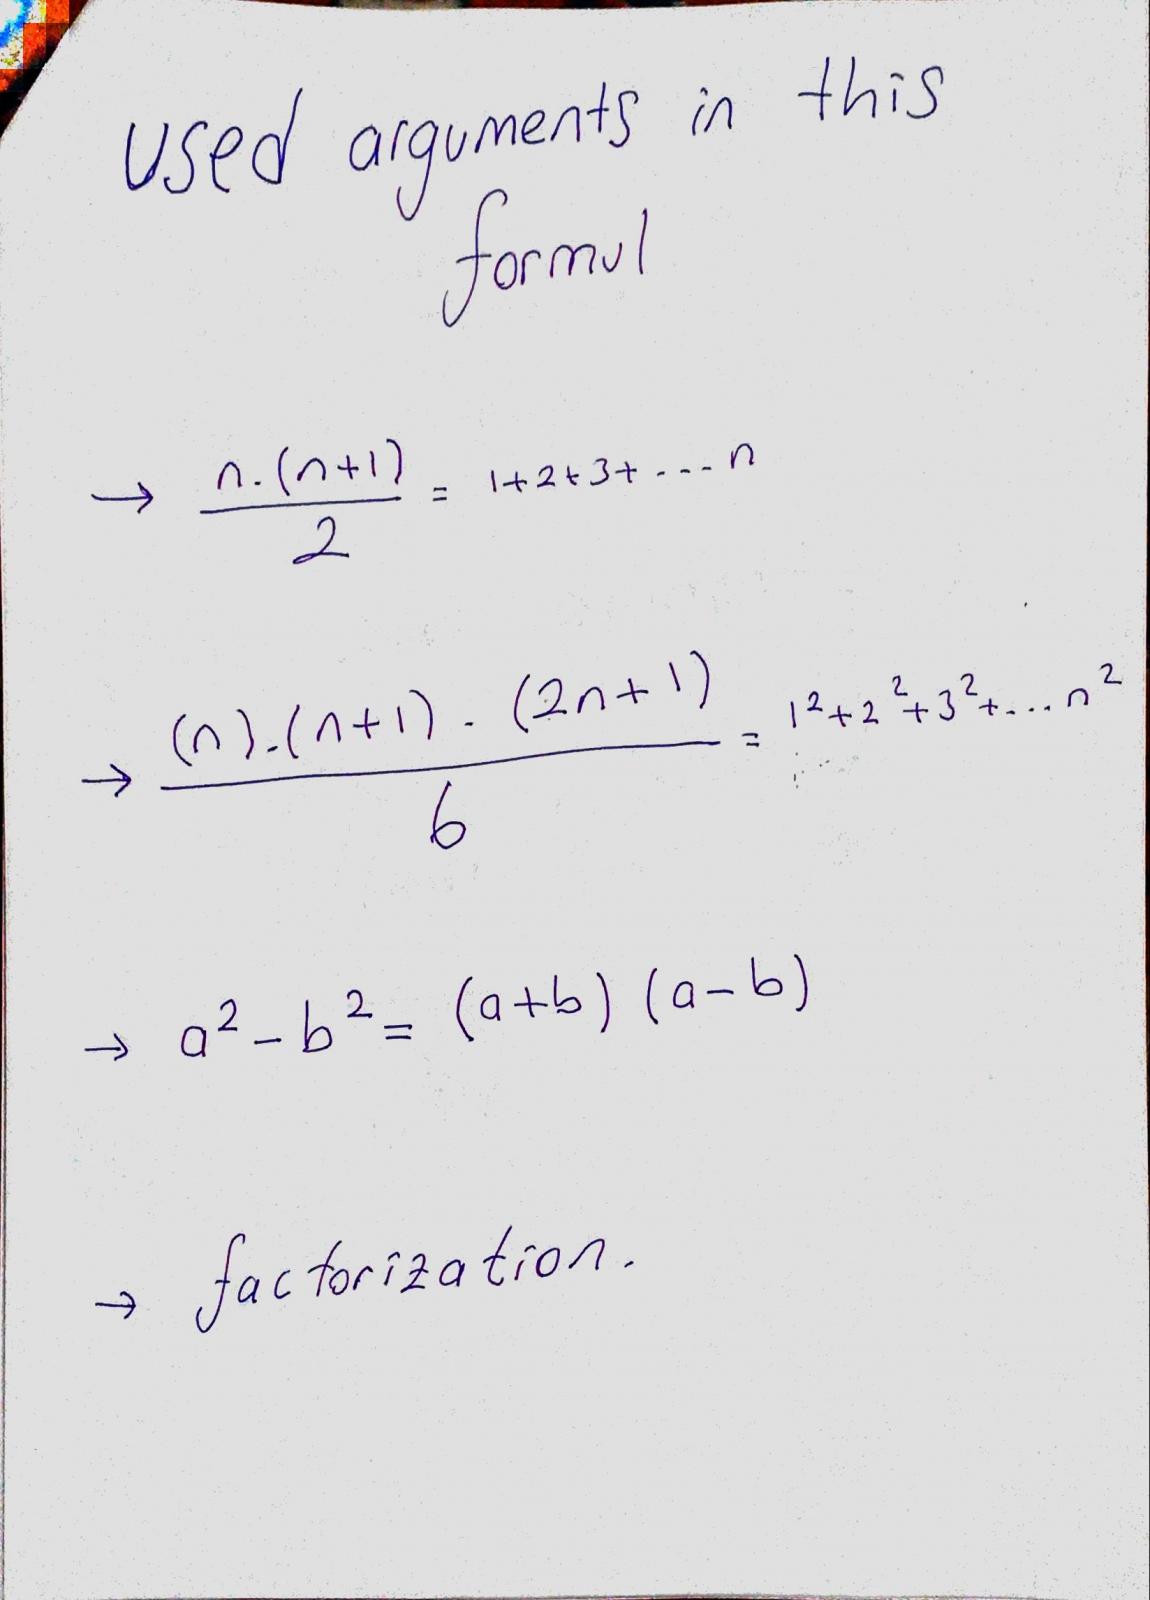 used arguments in this
formul
→ n.(n+1)/2 = 1+2+3+....n
→ (n).(n+1).(2n+1)/6 = 1²+2²+3²+...n²
→ a²-b²= (a+b) (a-b)
→ factorization.